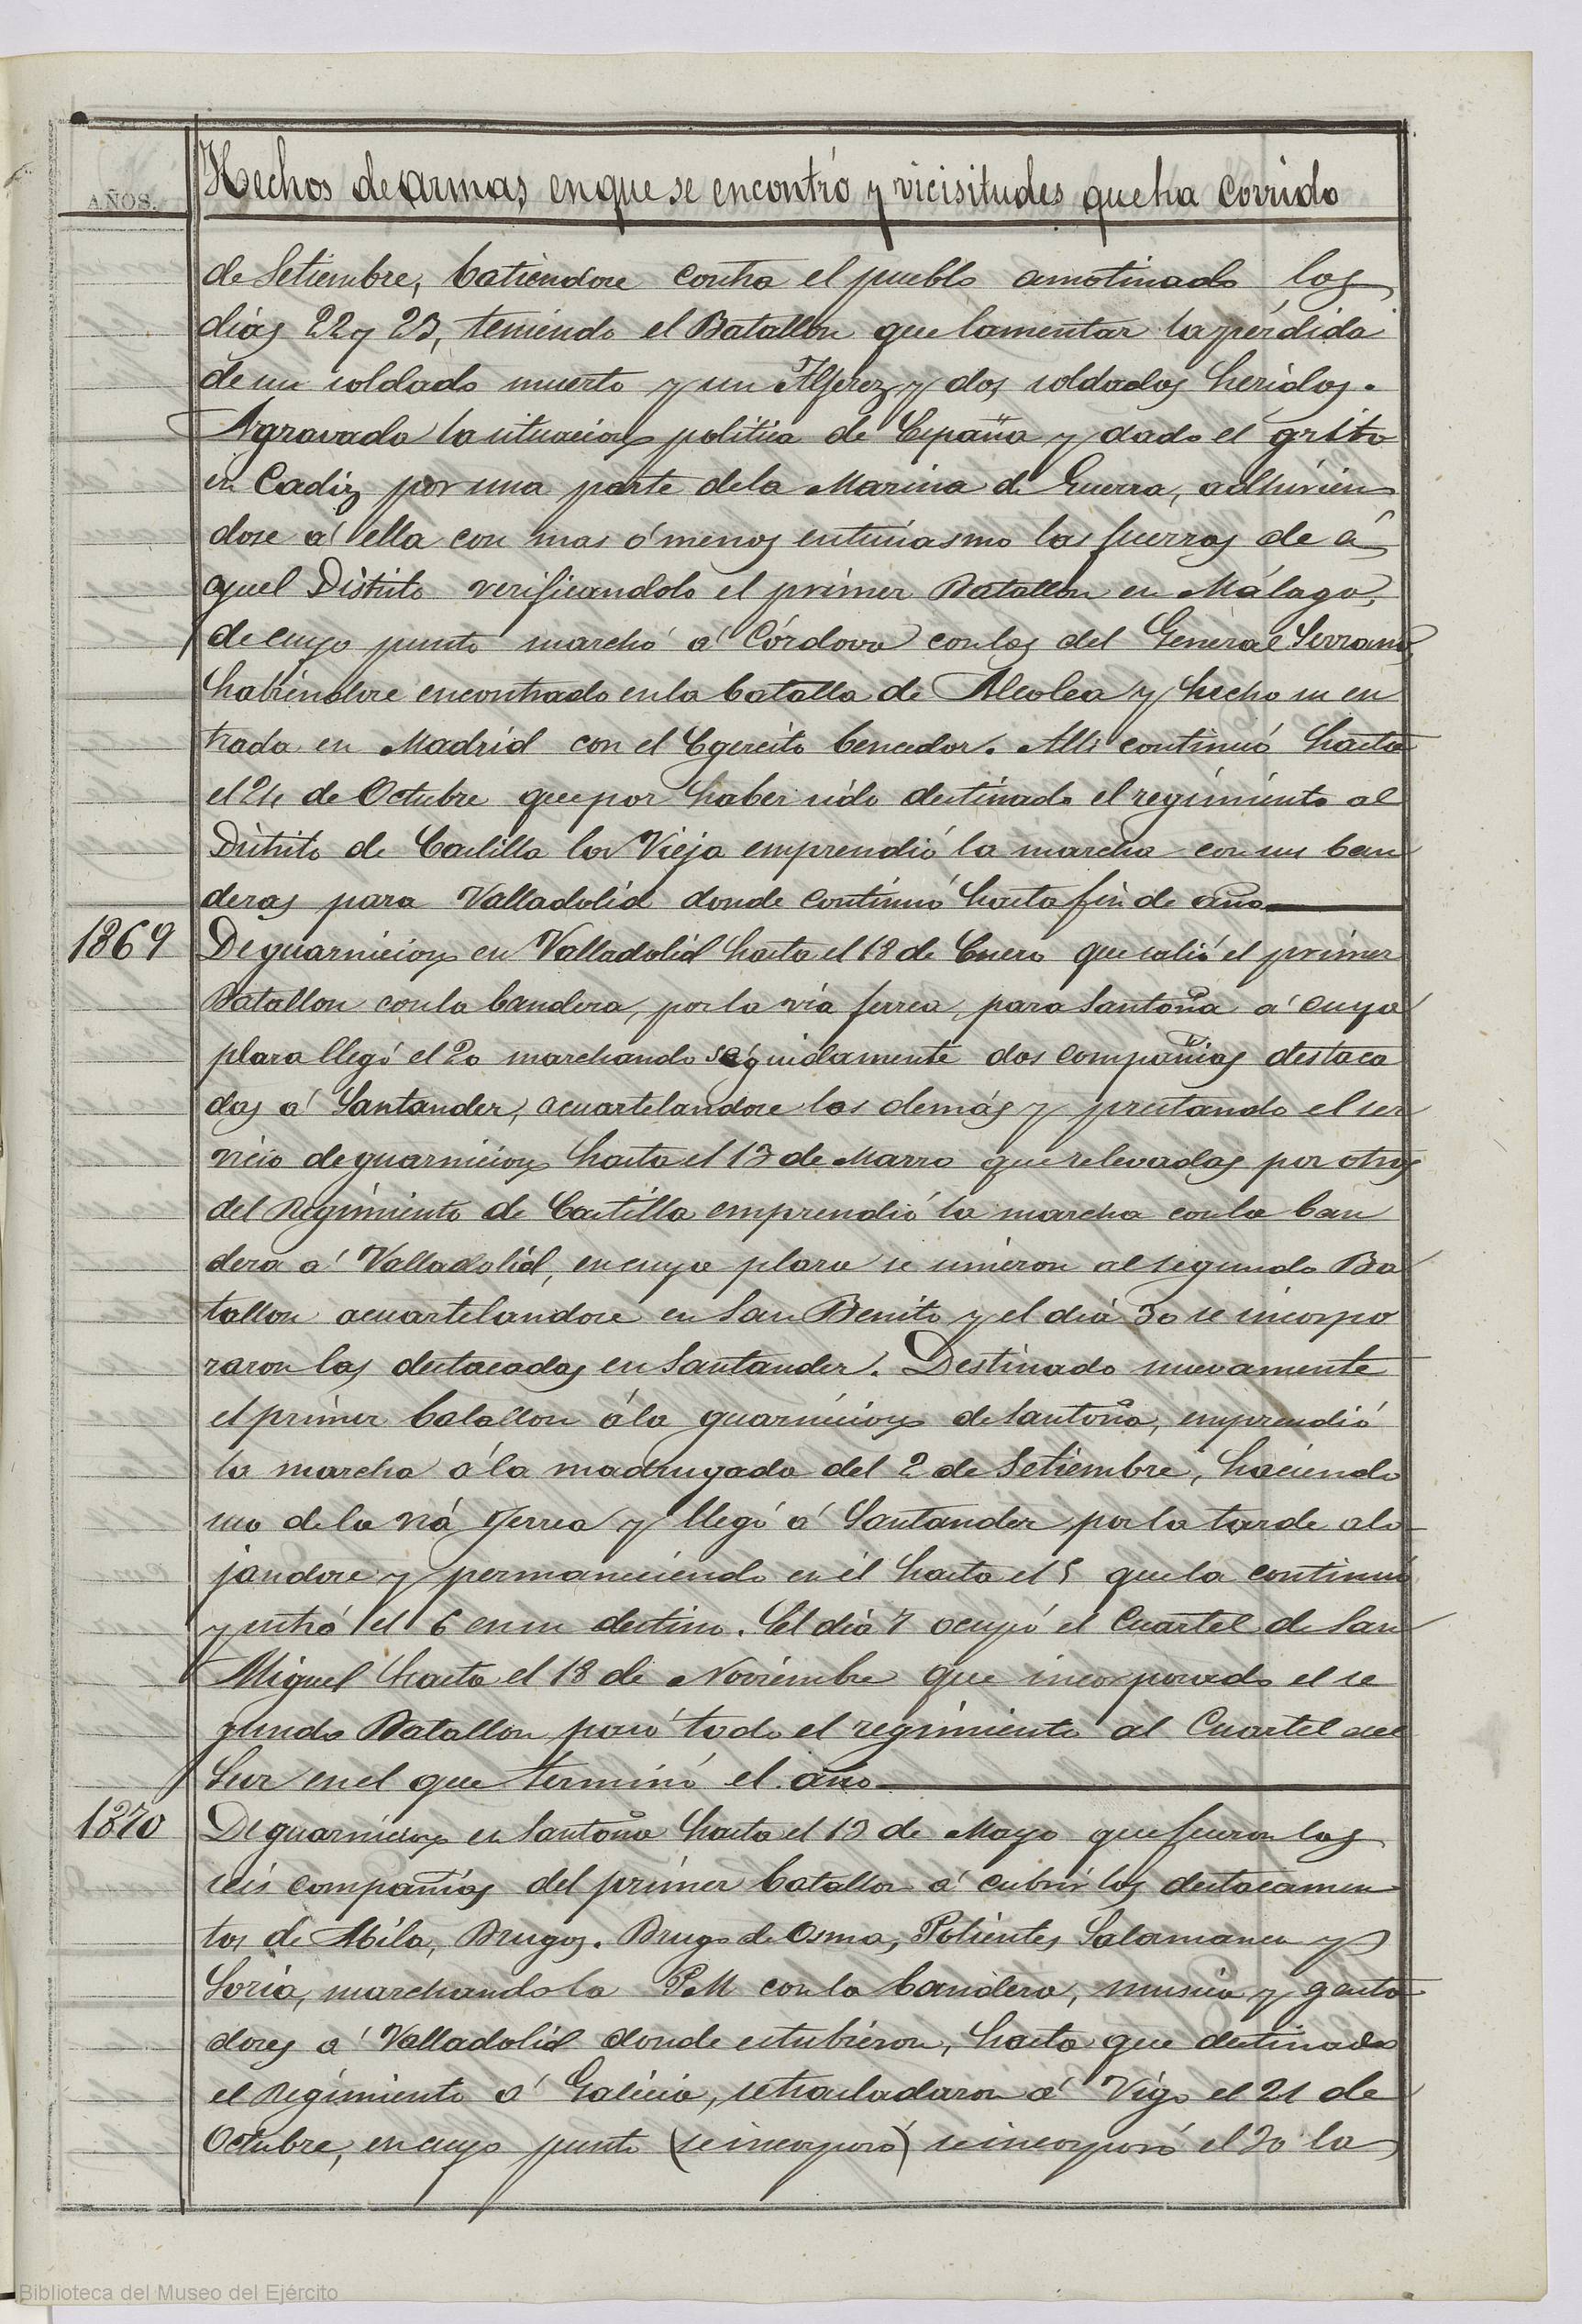 AÑOS.
Hechos de armas, en que se encontró y vicisitudes que ha corrido
de Setiembre, batiendose contra el pueblo amotinado los
dias 22 y 23, teniendo el Batallon que lamentar la pérdida
de un soldado muerto y un Alferez y dos soldados heridos.
Agravada la situacion politica de España y dado el grito
en Cadiz por una parte de la Marina de Guerra, adhirien
dose á ella con mas ó menos entusiasmo las fuerzas de a
quel Distrito verificandolo el primer Batallon en Málaga,
de cuyo punto marchó á Córdova con las del General Serrano,
habiendose encontrado en la batalla de Alcolea y hecho su en
trada en Madrid con el Egercito bencedor. Alli continuó hasta
el 24 de Octubre que por haber sido destinado el regimiento al
Distrito de Castilla la Vieja emprendió la marcha con sus ban
deras para Valladolid donde continuó hasta fin de año
1869
De guarnicion en Valladolid hasta el 18 de Enero que salió el primer
Batallon con la bandera, por la via ferrea, para Santoña á cuya
plaza llegó el 20 marchando seguidamente dos compañias destaca
das á Santander, acuartelandose las demás y prestando el ser
vicio de guarnicion hasta el 13 de Marzo que relevadas por otras
del Regimiento de Castilla emprendió la marcha con la ban
dera á Valladolid, en cuya plaza se unieron al segundo Ba
tallon acuartelandose en San Benito y el dia 30 se incorpo
raron las destacadas en Santander. Destinado nuevamente
el primer batallon á la guarnicion de Santoña, emprendió
la marcha á la madrugada del 2 de Setiembre, haciendo
uso de la via ferrea y llegó á Santander por la tarde alo
jandose y permaneciendo en él hasta el 5 que la continuó
y entró el 6 en su destino. El dia 7 ocupó el Cuartel de San
Miguel hasta el 18 de Noviembre que incorporado el se
gundo Batallon pasó todo el regimiento al Cuartel del
Sur en el que terminó el año
1870
De guarnicion en Santoña hasta el 13 de Mayo que fueron las
seis compañias del primer batallon á cubrir los destacamen
tos de Abila, Brugos. Brugo de Osma, Polientes, Salamanca y
Soria, marchando la P.M. con la bandera, musica y gasta
dores á Valladolid donde estubieron, hasta que destinado
el Regimiento á Galicia, se trasladaron á Vigo el 21 de
Octubre, en cuyo punto (se incorporó) se incorporó el 30 la
Biblioteca del Museo del Ejército